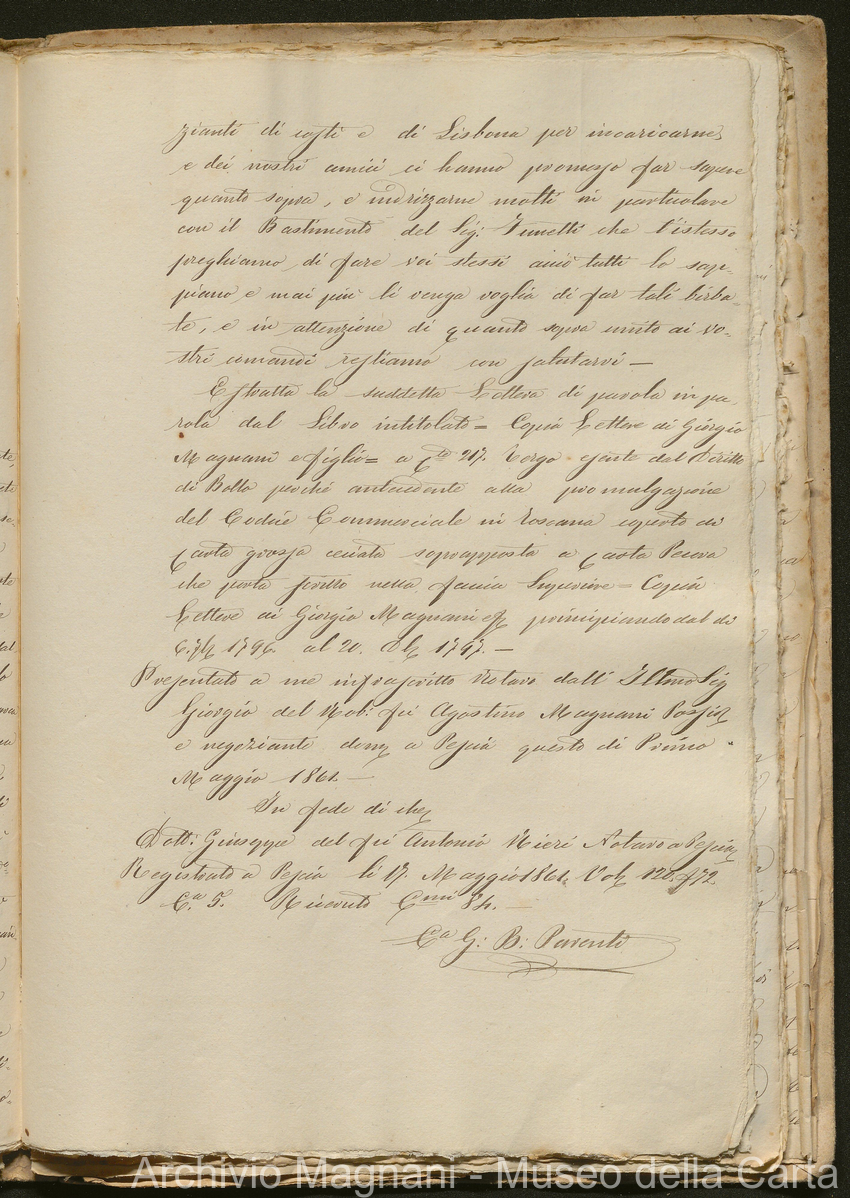 zianti di costì e di Lisbona per incaricarne
e dei nostri amici ci hanno promesso far sapere
quanto sopra, e indrizzarne molti in particolare
con il Bastimento del Sig: che l'istesso
preghiamo di fare voi stessi acciò tutti lo sap-
piano e mai più li venga voglia di far tali birba-
te, e in attenzione di quanto sopra uniti ai vo-
stri comandi restiamo con salutarvi —
Estratta la suddetta Lettera di parola in pa-
rola dal Libro intitolato = Copia Lettere di Giorgio
Magnani e figli = a C. 217. tergo esente dal Diritto
di Bollo perché antecedente alla promulgazione
del Codice Commerciale in Toscana coperto di
Carta grossa soprapposta a Carta Pecora
che porta scritto nella faccia Superiore = Copia
Lettere di Giorgio Magnani e f. principiando dal dì
6. 7b 1796. al 20. 1797. —
Presentato a me infrascritto Notaro dall' Illmo Sig
Giorgio del Nob: fù Agostino Magnani Possid
e negoziante dom a Pescia questo dì Primo
Maggio 1861. —
In fede di che
Dott: Giuseppe del fù Antonio Nieri Notaro a Pescia
Registrato a Pescia li 17. Maggio 1861. Vol 120. f 72.
C.a 5. Ricevuto Cmi 84. —
G: B: Parenti
Archivio Magnani - Museo della Carta